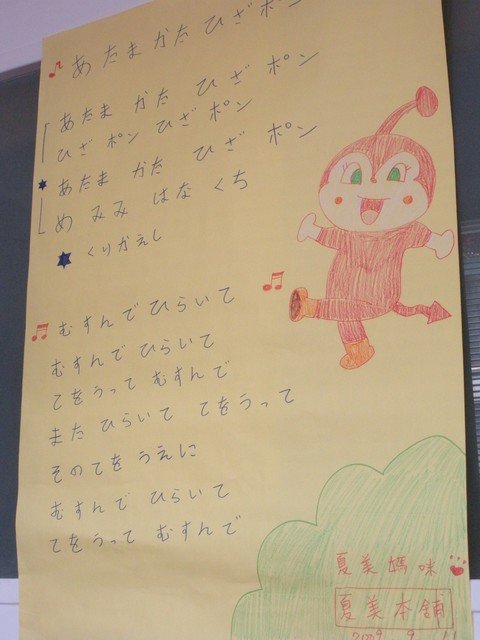 あたま かた ひざ ポン
あたま かた ひざ ポン
ひざ ポン ひざ ポン
あたま かた ひざ ポン
め みみ はな くち
くりかえし
むすんで ひらいて
むすんで ひらいて
てをうって むすんで
また ひらいて てをうって
そのてを うえに
むすんで ひらいて
てをうって むすんで
夏美媽咪
夏美本舖
2009 9